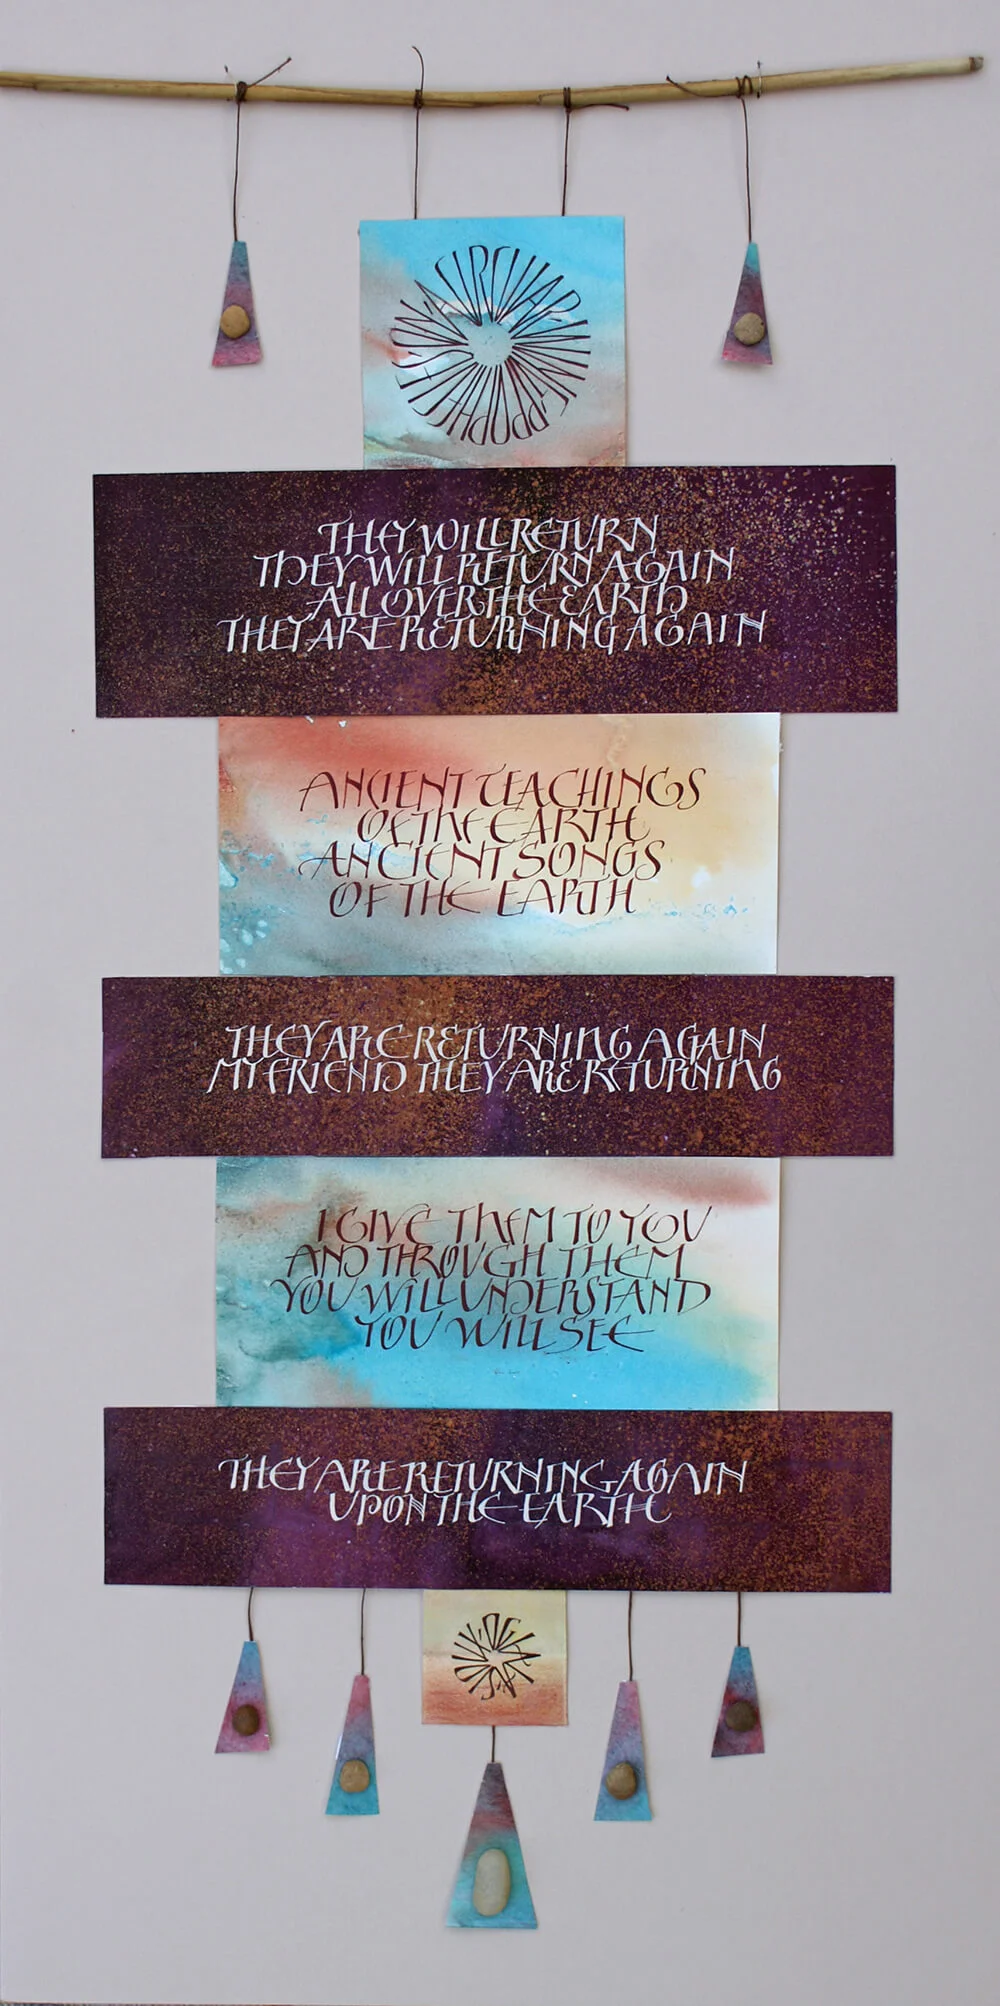 CIRCULAR
THEY WILL RETURN
THEY WILL RETURN AGAIN
ALL OVER THE EARTH
THEY ARE RETURNING AGAIN
ANCIENT TEACHINGS
OF THE EARTH
ANCIENT SONGS
OF THE EARTH
THEY ARE RETURNING AGAIN
MY FRIEND THEY ARE RETURNING
I GIVE THEM TO YOU
AND THROUGH THEM
YOU WILL UNDERSTAND
YOU WILL SEE
THEY ARE RETURNING AGAIN
UPON THE EARTH